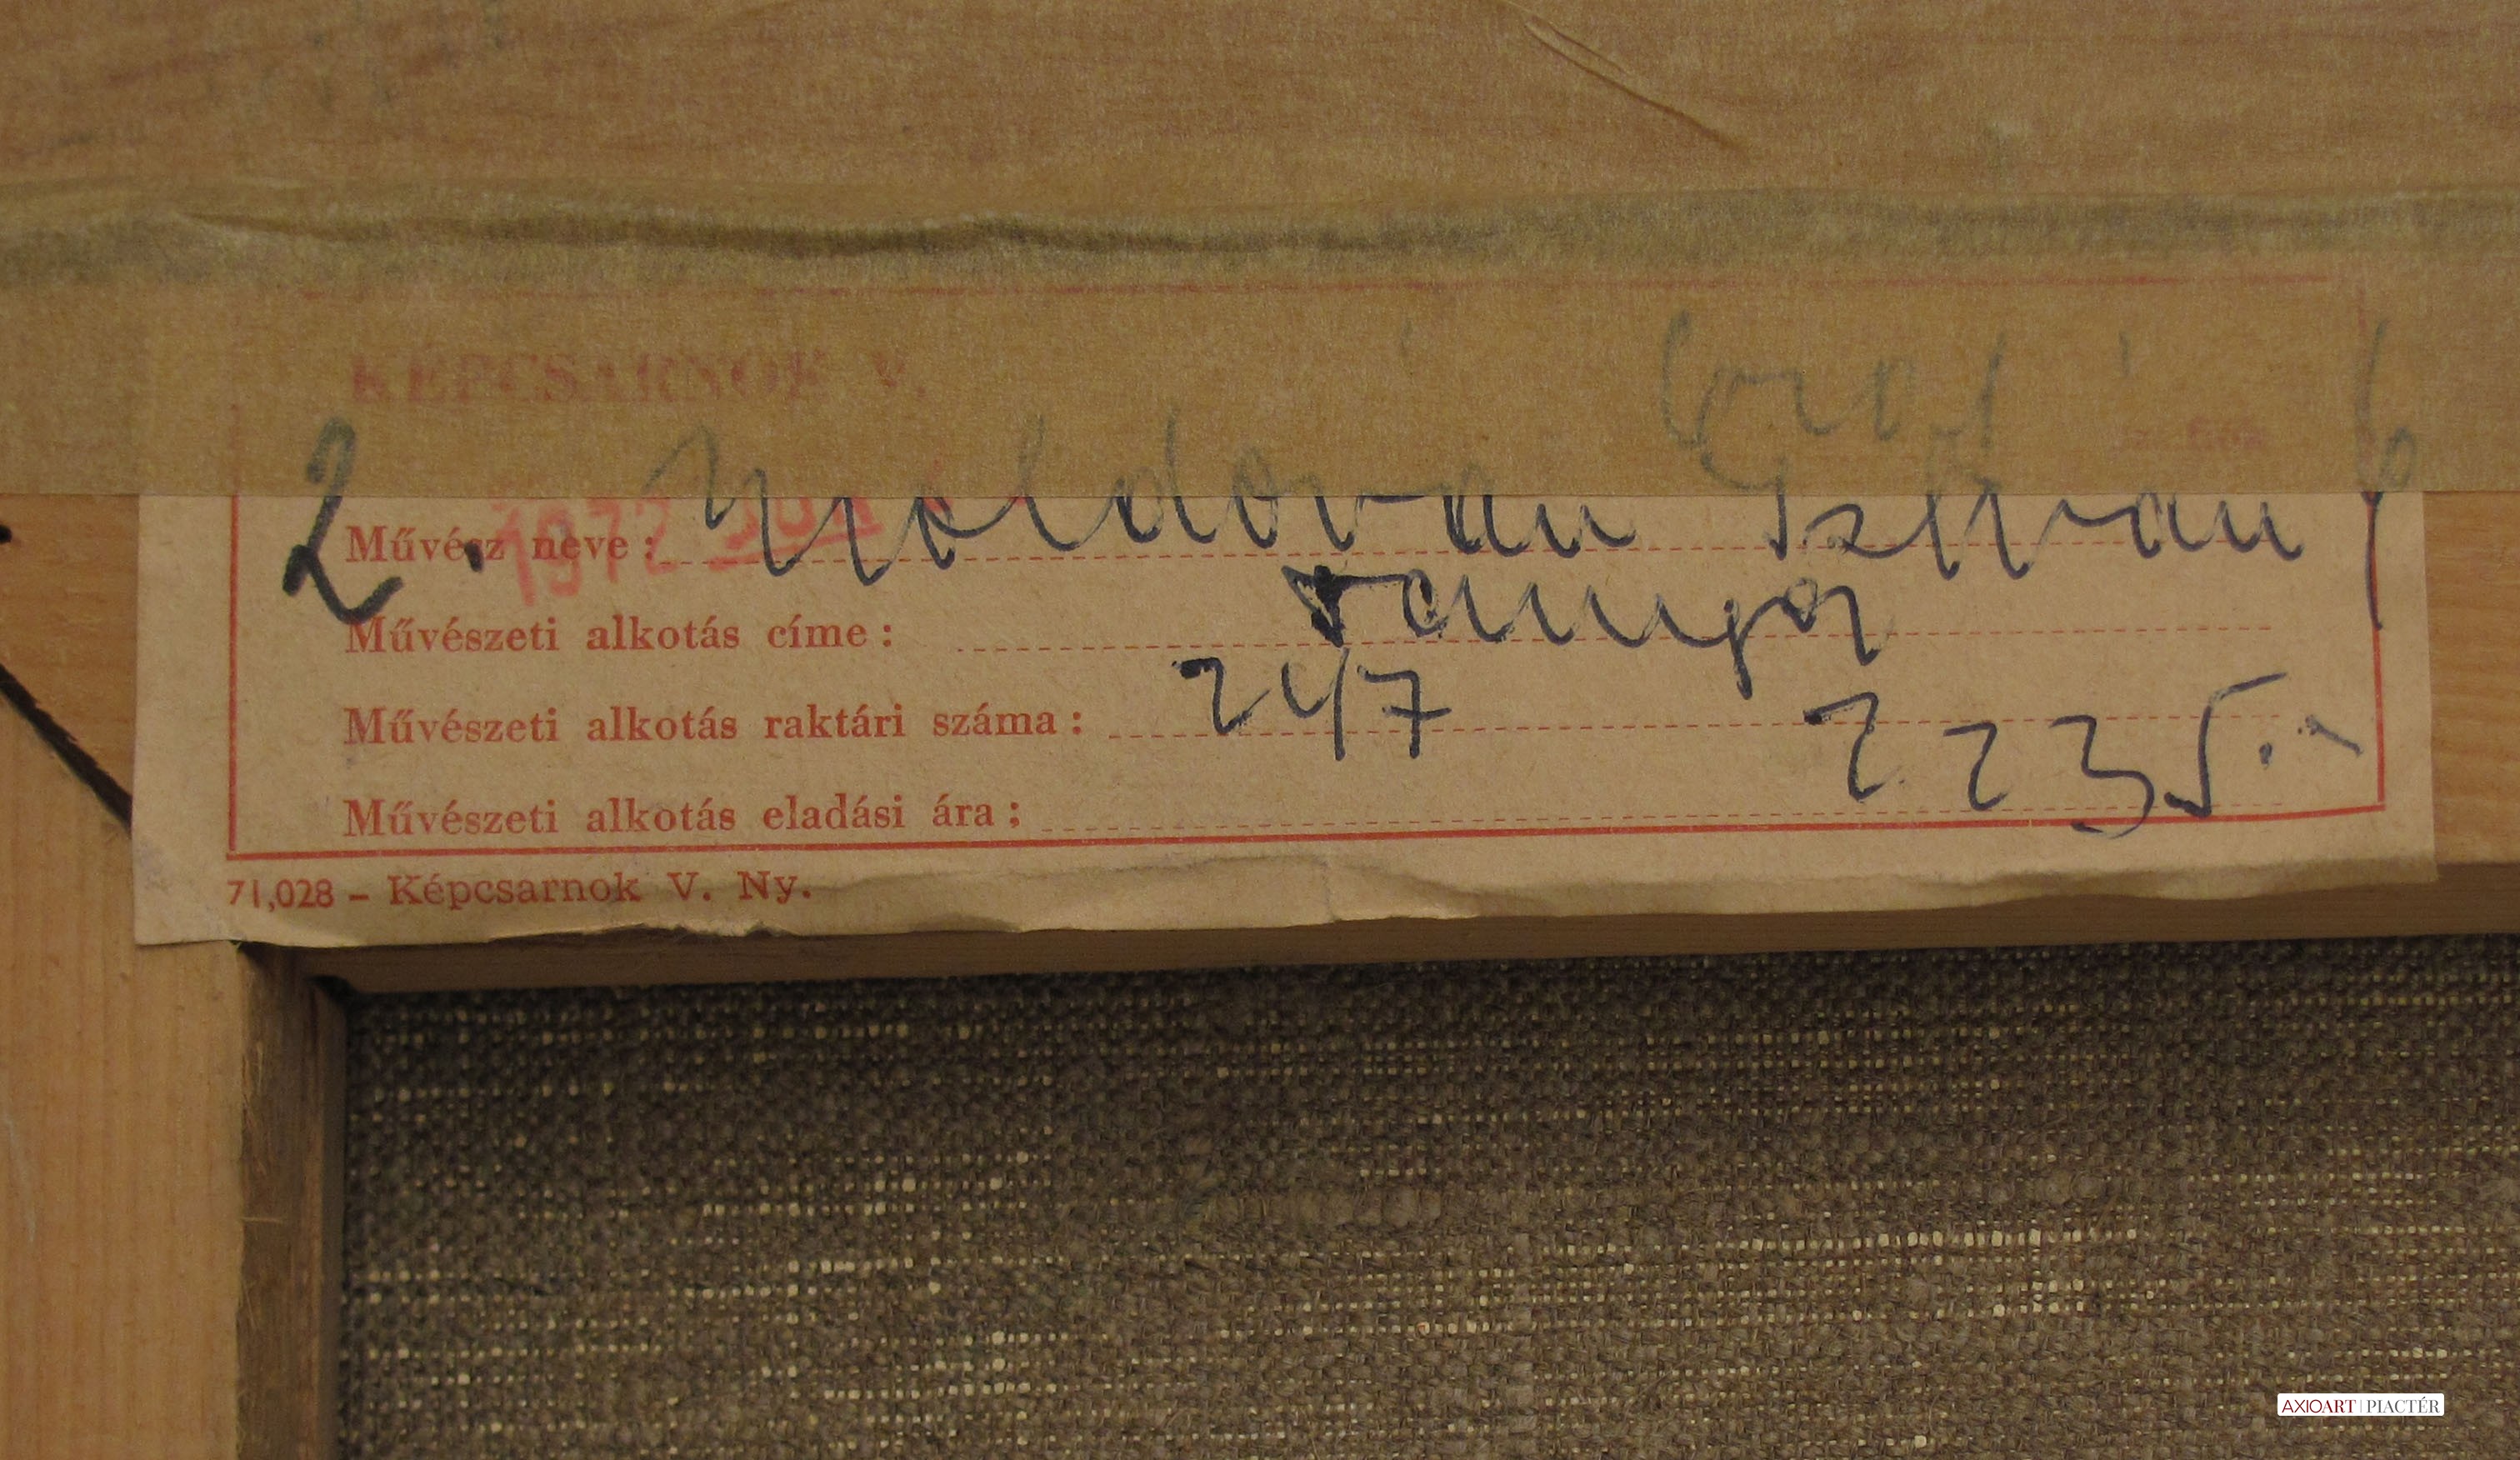 KÉPCSARNOK V.
2.
Művész neve: Moldován István
1972
Művészeti alkotás címe: Tanya
Művészeti alkotás raktári száma: 247
Művészeti alkotás eladási ára: 2235.-
71,028 – Képcsarnok V. Ny.
AXIOART | PIACTÉR